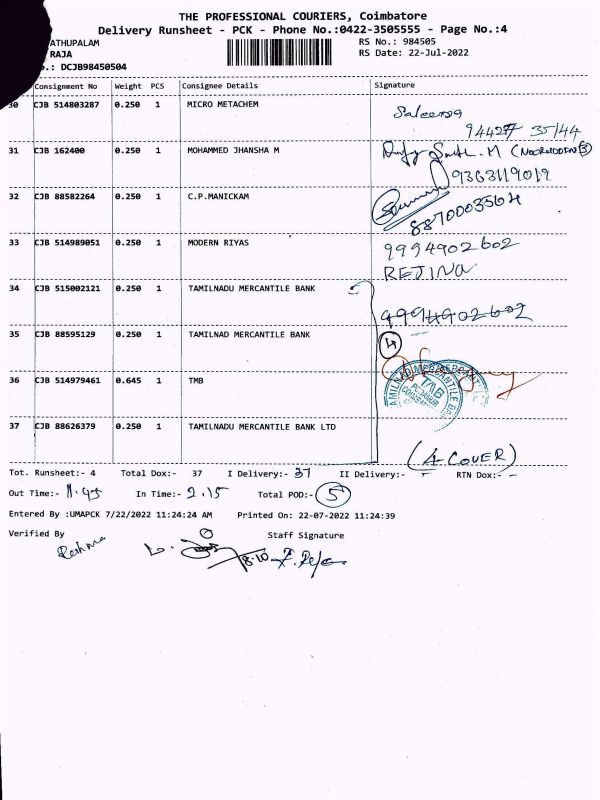 THE PROFESSIONAL COURIERS, Coimbatore
Delivery Runsheet - PCK - Phone No.:0422-3505555 - Page No.:4
ATHUPALAM
RS No.: 984505
RAJA
RS Date: 22-Jul-2022
.: DCJB98450504
Consignment No Weight PCS Consignee Details Signature
30 CJB 514803287 0.250 1 MICRO METACHEM
31 CJB 162400 0.250 1 MOHAMMED JHANSHA M
9363119019
32 CJB 88582264 0.250 1 C.P.MANICKAM
8870003564
33 CJB 514989051 0.250 1 MODERN RIYAS 9994902602
REJINA
34 CJB 515002121 0.250 1 TAMILNADU MERCANTILE BANK
9994902602
35 CJB 88595129 0.250 1 TAMILNAD MERCANTILE BANK 4
36 CJB 514979461 0.645 1 TMB
37 CJB 88626379 0.250 1 TAMILNADU MERCANTILE BANK LTD
(4 COVER)
Tot. Runsheet:- 4 Total Dox:- 37 I Delivery:- 37 II Delivery:- - RTN Dox:- -
Out Time:- 11.45 In Time:- 2.15 Total POD:- 5
Entered By :UMAPCK 7/22/2022 11:24:24 AM Printed On: 22-07-2022 11:24:39
Verified By Staff Signature
Reshma
8.10